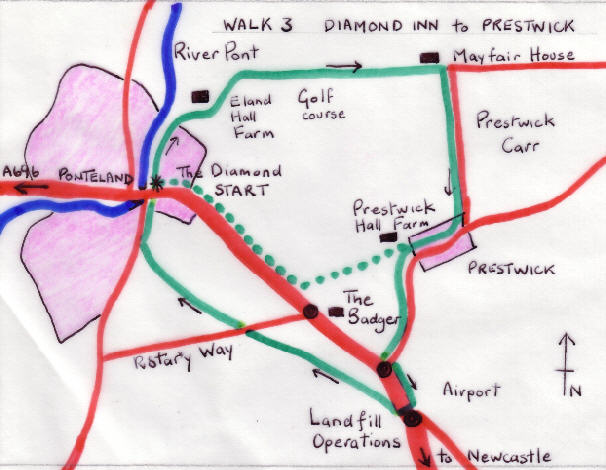 WALK 3 DIAMOND INN to PRESTWICK
River Pont
Mayfair House
Eland
Hall
Farm
Golf
course
Prestwick
Carr
A696
PONTELAND
The Diamond
START
Prestwick
Hall Farm
PRESTWICK
The
Badger
Rotary Way
N
Airport
Landfill
Operations
to Newcastle